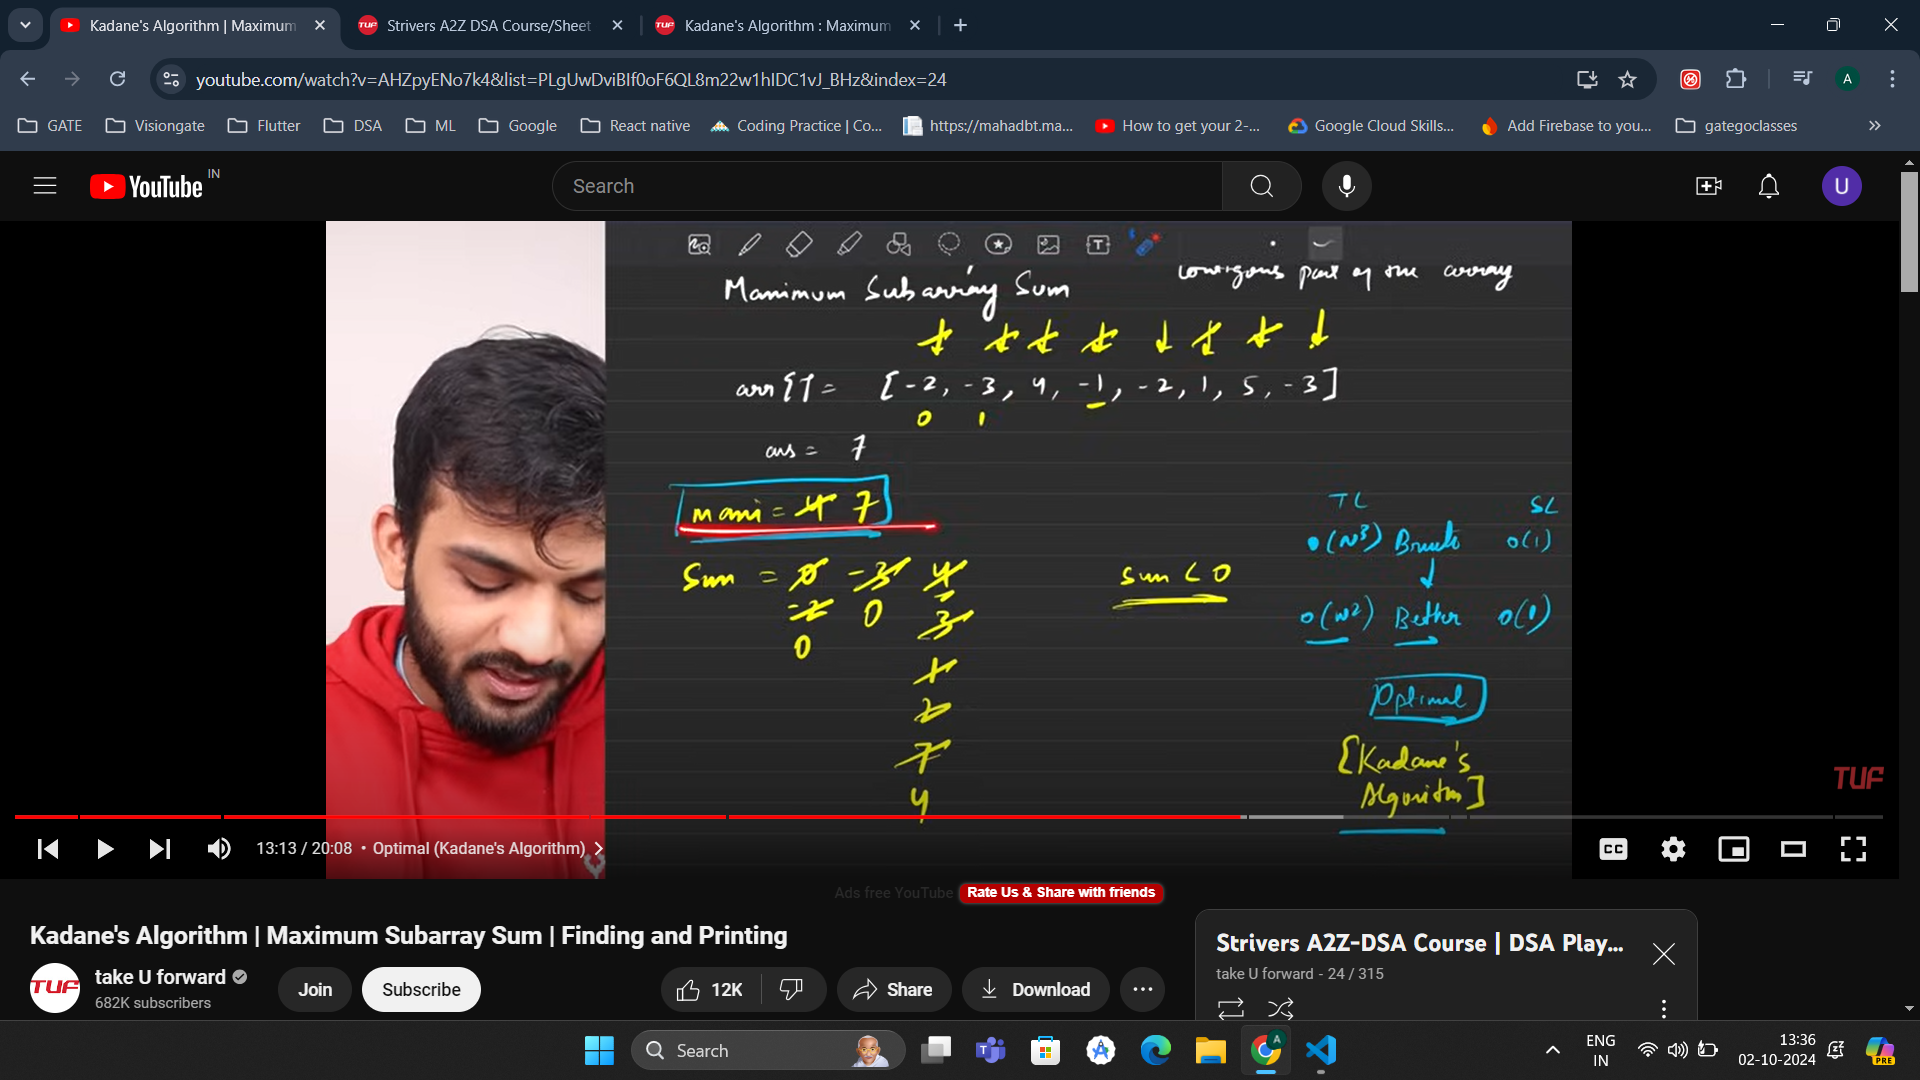 Kadane's Algorithm | Maximum
Strivers A2Z DSA Course/Sheet
Kadane's Algorithm : Maximum
youtube.com/watch?v=AHZpyENo7k4&list=PLgUwDviBIf0oF6QL8m22w1hIDC1vJ_BHz&index=24
A
GATE
Visiongate
Flutter
DSA
ML
Google
React native
Coding Practice | Co...
https://mahadbt.ma...
How to get your 2-...
Google Cloud Skills...
Add Firebase to you...
gategoclasses
YouTube IN
Search
U
part of the array
Maximum Subarray Sum
arr[] = [-2, -3, 4, -1, -2, 1, 5, -3]
0 1
ans = 7
maxi = 4 7
TC SC
O(N³) Brute O(1)
Sum = 0 -3 4
sum < 0
-2 0 3
O(N²) Better O(1)
0
1
2
Optimal
7
[Kadane's
Algorithm]
4
TUF
13:13 / 20:08 • Optimal (Kadane's Algorithm)
CC
Ads free YouTube
Rate Us & Share with friends
Kadane's Algorithm | Maximum Subarray Sum | Finding and Printing
TUF
take U forward
682K subscribers
Join
Subscribe
12K
Share
Download
Strivers A2Z-DSA Course | DSA Play...
take U forward - 24 / 315
Search
ENG
IN
13:36
02-10-2024
PRE